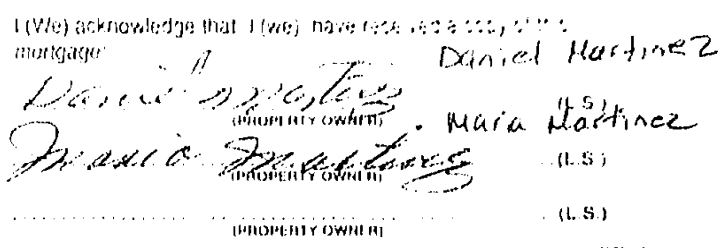 I (We) acknowledge that I (we) have received a copy of this
mortgage: Daniel Martinez
Daniel Martinez (L.S.)
(PROPERTY OWNER) Maria Martinez
Maria Martinez (L.S.)
(PROPERTY OWNER)
(L.S.)
(PROPERTY OWNER)